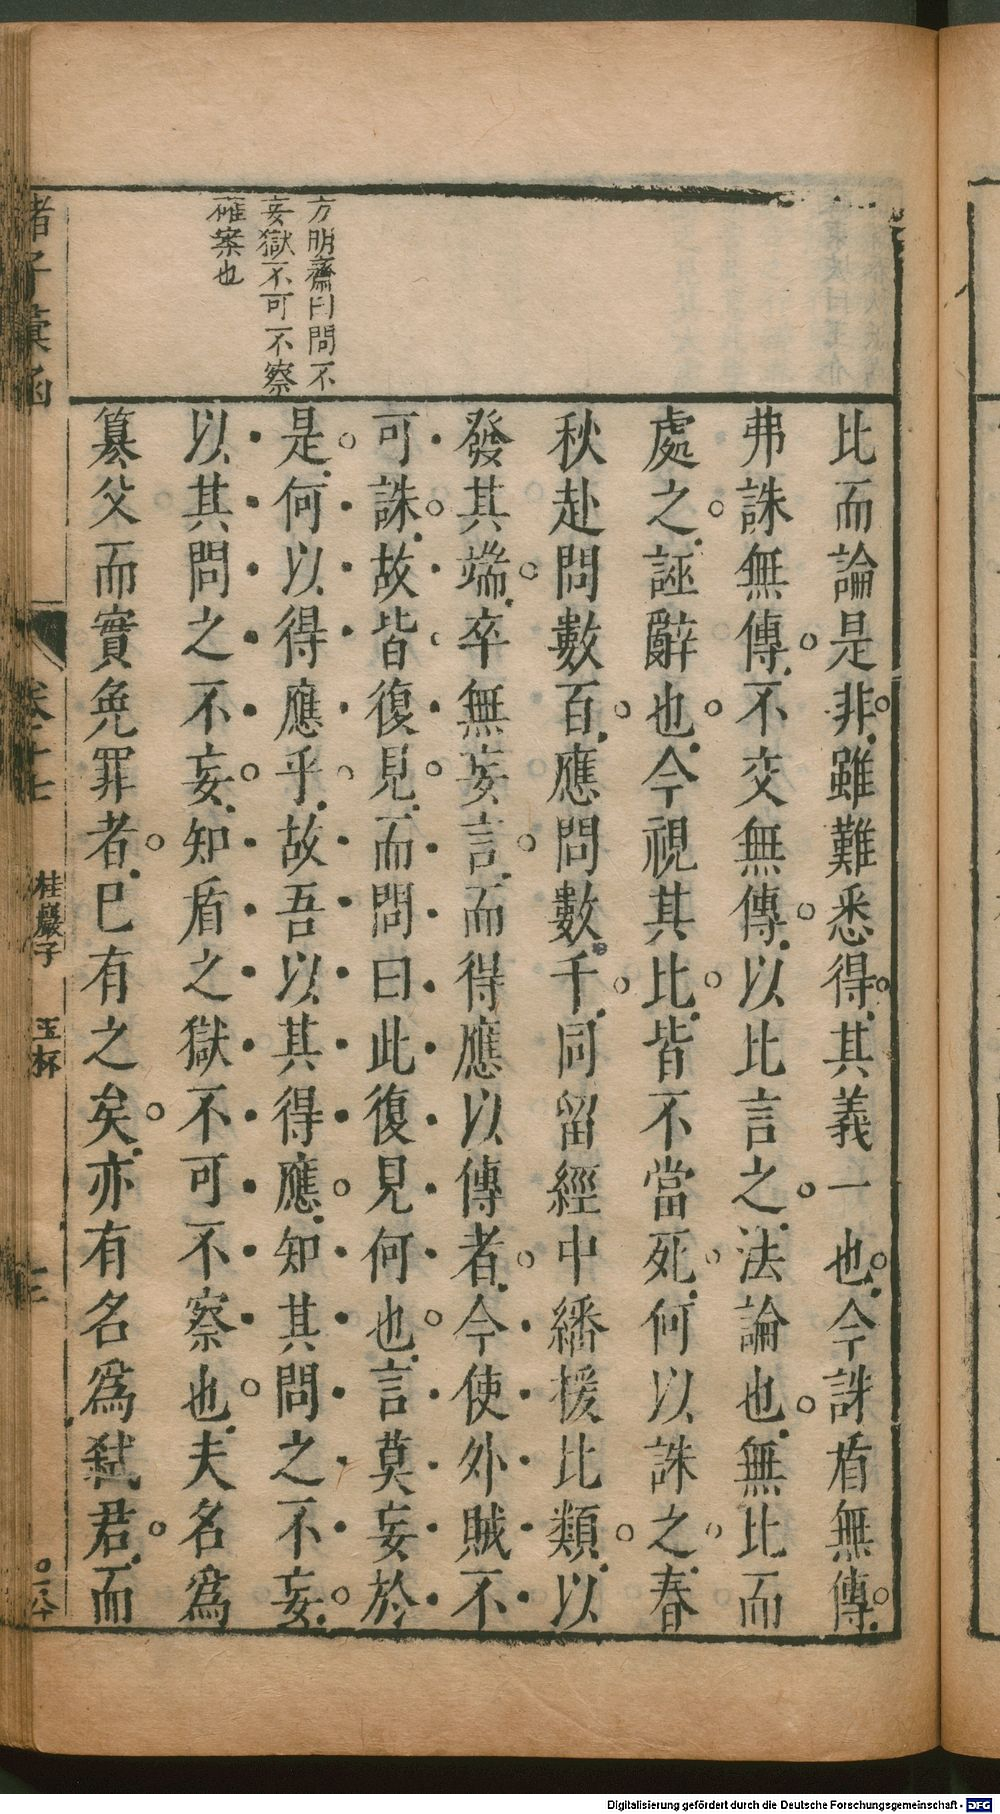 方明齋曰問不
妄獄不可不察
確案也
比而論是非雖難悉得其義一也今誅盾無傳
弗誅無傳不交無傳以比言之法論也無比而
處之誣辭也今視其比皆不當死何以誅之春
秋赴問數百應問數千同留經中繙援比類以
發其端卒無妄言而得應以傳者今使外賊不
可誅故皆復見而問曰此復見何也言莫妄於
是何以得應乎故吾以其得應知其問之不妄
以其問之不妄知盾之獄不可不察也夫名爲
篡父而實免罪者已有之矣亦有名爲弑君而
諸子彙函
卷十七
桂巖子 玉杯
三
Digitalisierung gefördert durch die Deutsche Forschungsgemeinschaft - DFG